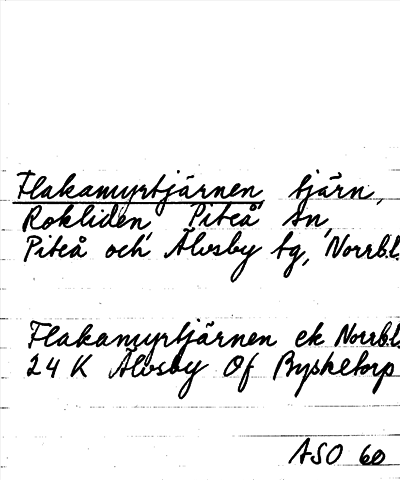 Flakamyrtjärnen, tjärn,
Rokliden, Piteå sn,
Piteå och Älvsby tg, Norrb.l.
Flakamyrtjärnen ek Norrb.l.
24 K Älvsby Of Byskelorp
ASO 60